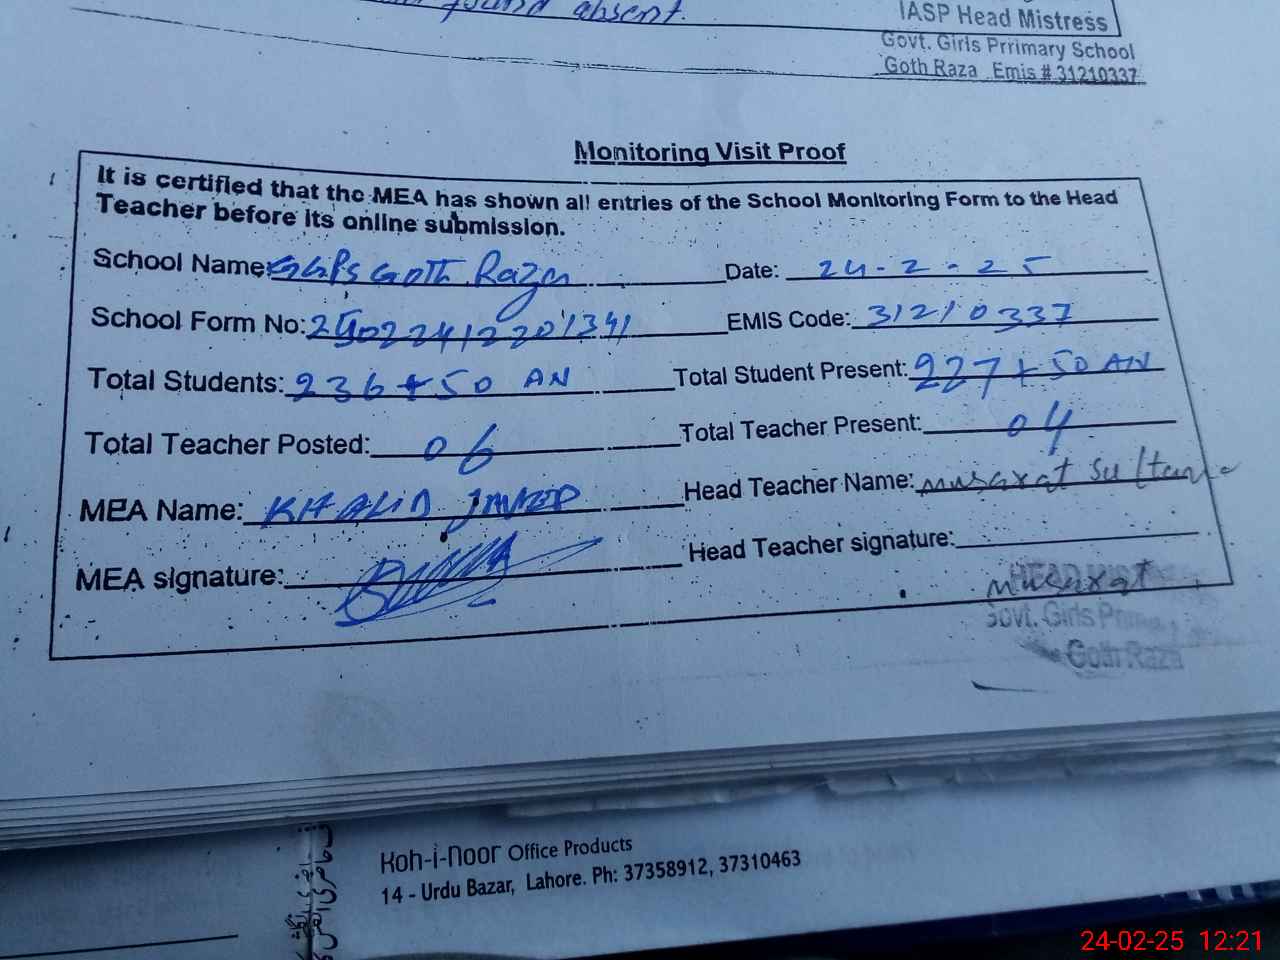 found absent.
IASP Head Mistress
Govt. Girls Prrimary School
Goth Raza Emis # 31210337
Monitoring Visit Proof
It is certified that the MEA has shown all entries of the School Monitoring Form to the Head
Teacher before its online submission.
School Name: GGPS GOTH Raza Date: 24-2-25
School Form No: EMIS Code: 31210337
Total Students: 236+50 AN Total Student Present: 227+50 AN
Total Teacher Posted: 06 Total Teacher Present: 04
MEA Name: KHALID JAVED Head Teacher Name: Musarrat Sultana
MEA signature: Head Teacher signature:
Musarrat
Govt. Girls
Goth Raza
Koh-i-noor Office Products
14 - Urdu Bazar, Lahore. Ph: 37358912, 37310463
24-02-25 12:21